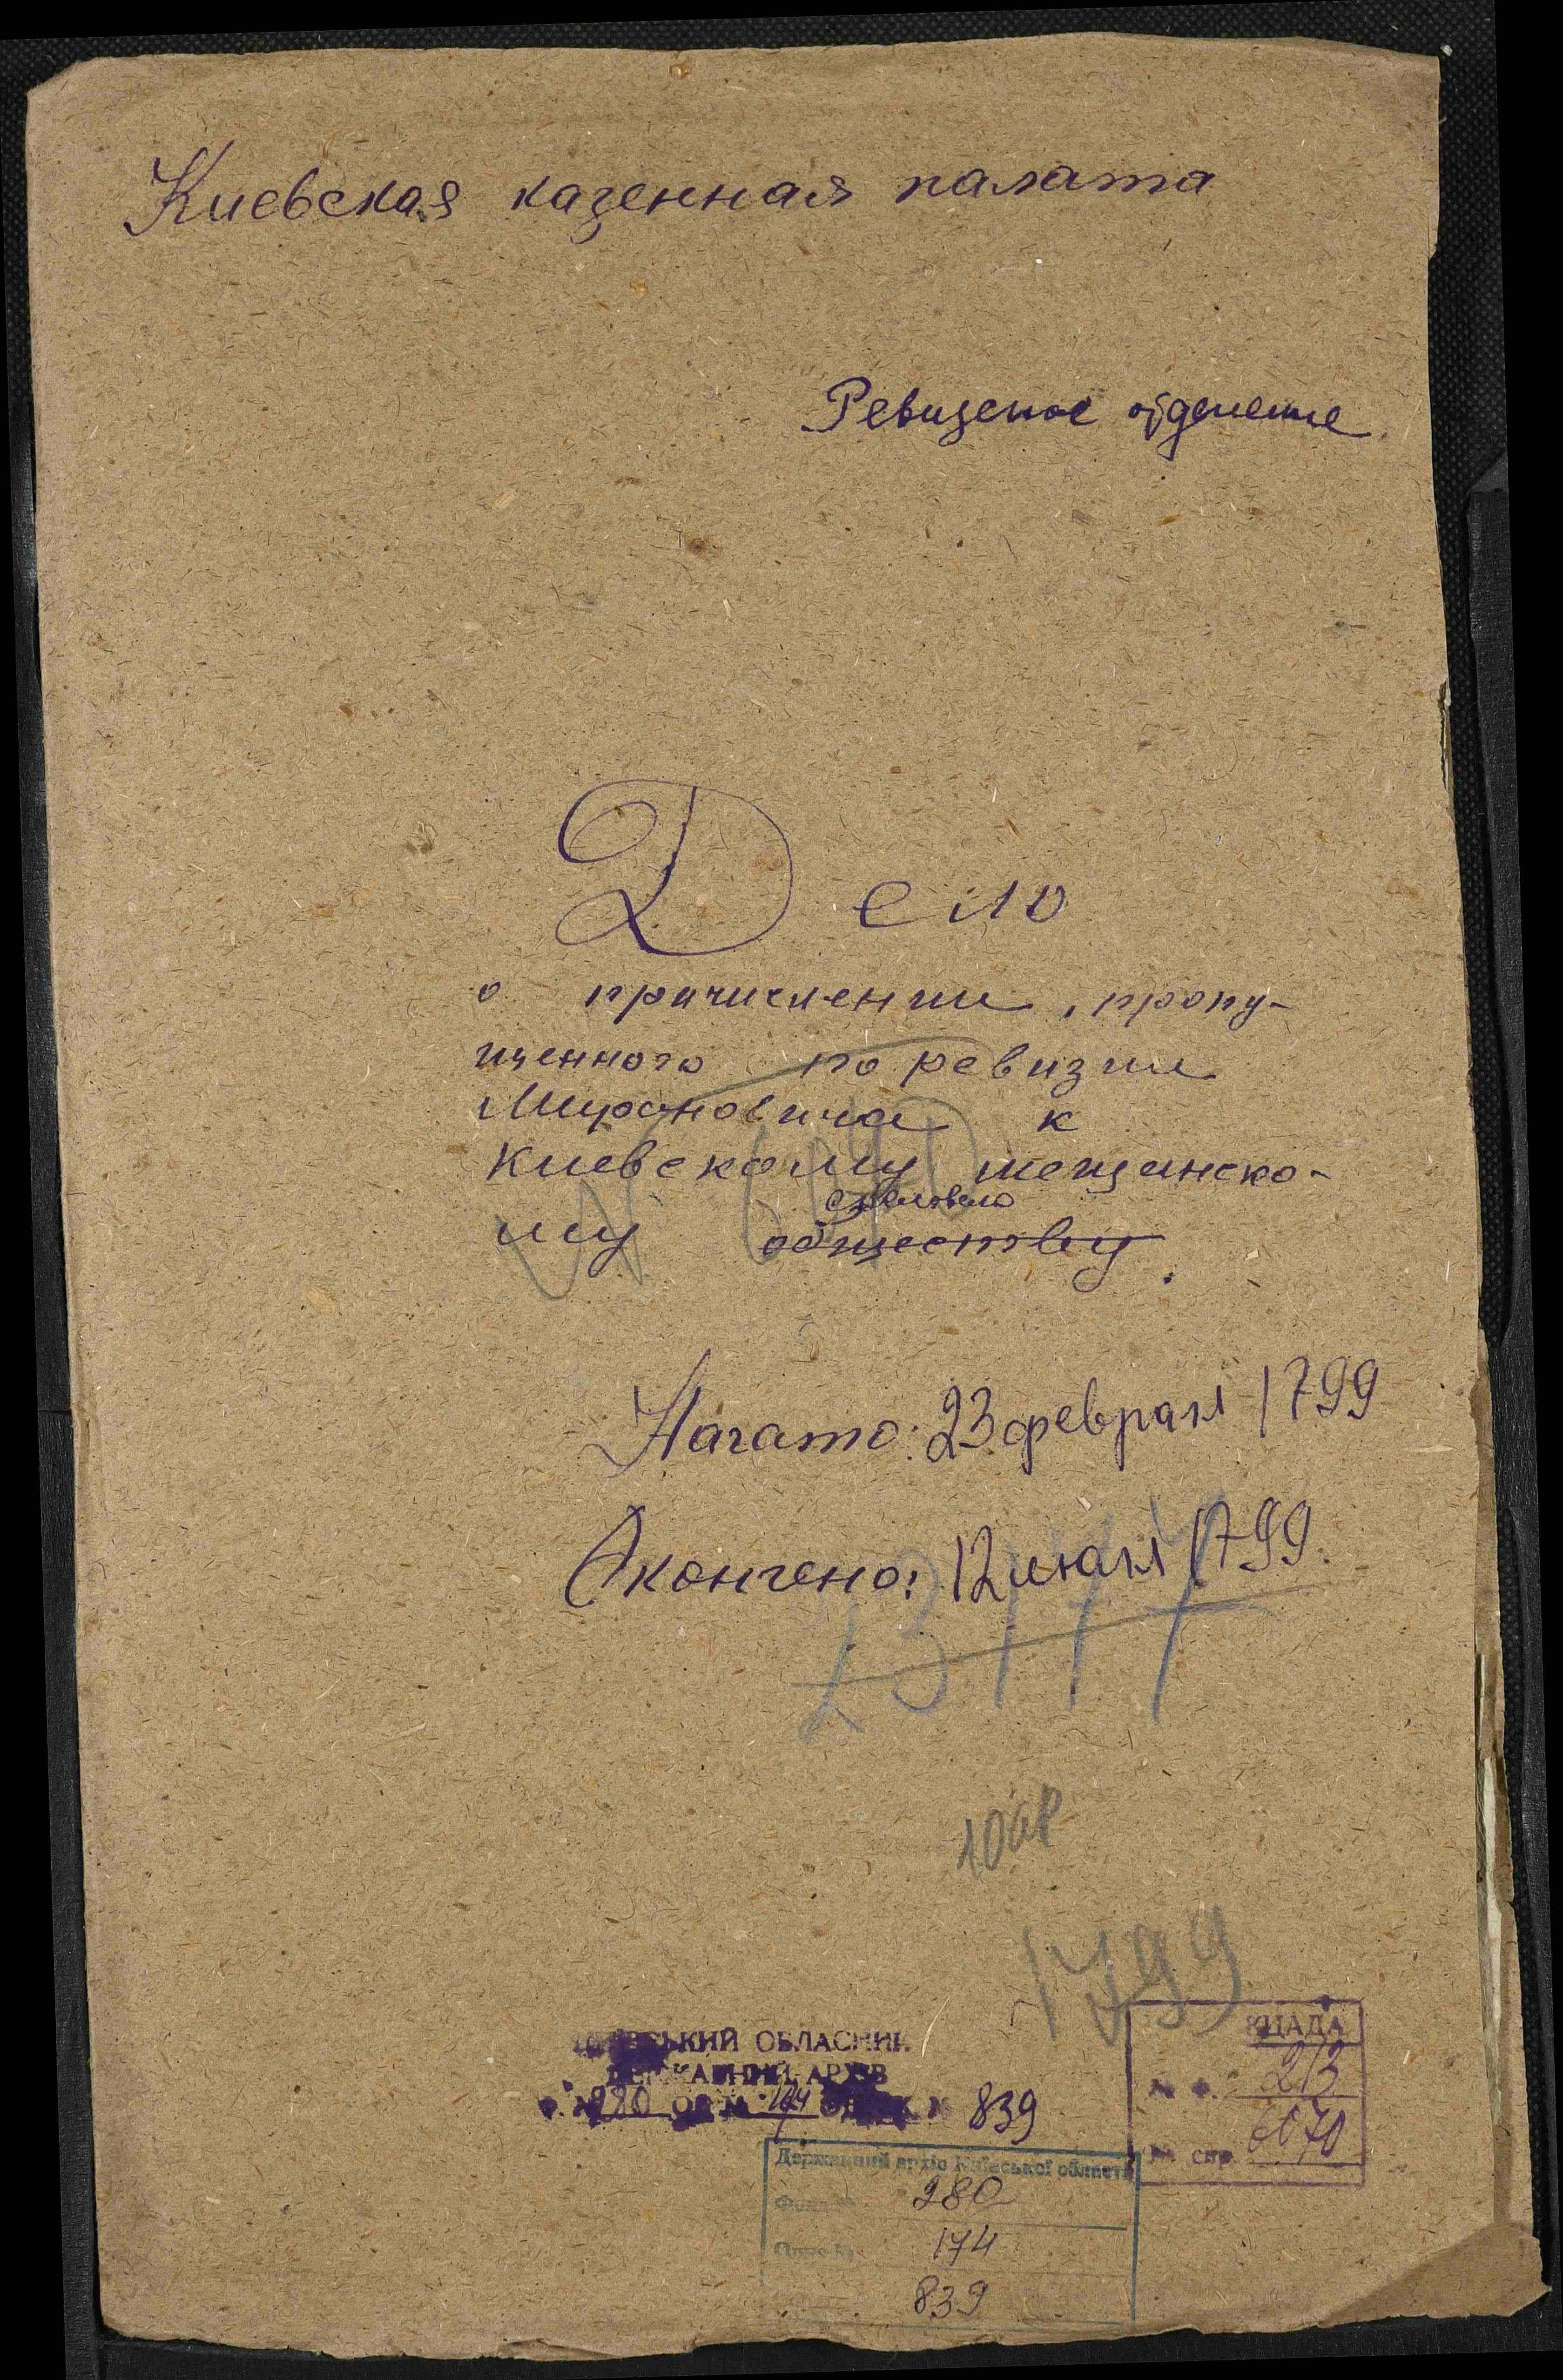 Киевская казенная палата
Ревизское отделение
Дело
о причислении, пропу-
щенного по ревизии
Мирановича к
Киевскому мещанско-
сословию
му обществу
N 6070
Начато: 23 февраля 1799
Окончено: 12 июля 1799.
1799
КИЇВСЬКИЙ ОБЛАСНИЙ
ДЕРЖАВНИЙ АРХІВ
Ф. № 280 ОП № 174 839
КЦАДА
№ Ф. 213
№ спр. 6070
Державний архів Київської області
Фонд № 280
Опис № 174
839